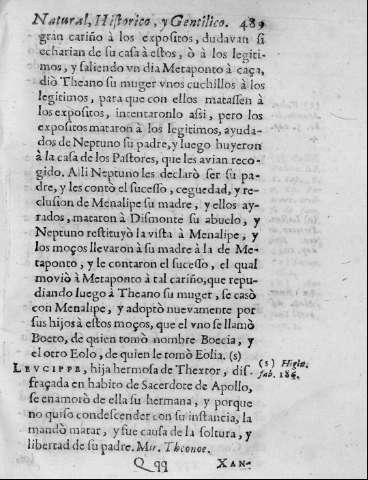 Natural, Historico, y Gentilico. 489
gran cariño à los expositos, dudavan si
echarian de su casa à estos, ò à los legiti-
mos, y saliendo vn dia Metaponto à caça,
diò Theano su muger vnos cuchillos à los
legitimos, para que con ellos matassen à
los expositos, intentaronlo assi, pero los
expositos mataron à los legitimos, ayuda-
dos de Neptuno su padre, y luego huyeron
à la casa de los Pastores, que les avian reco-
gido. Alli Neptuno les declarò ser su pa-
dre, y les contò el sucesso, ceguedad, y re-
clusion de Menalipe su madre, y ellos ay-
rados, mataron à Dismonte su abuelo, y
Neptuno restituyò la vista à Menalipe, y
los moços llevaron à su madre à la de Me-
taponto, y le contaron el sucesso, el qual
moviò à Metaponto à tal cariño, que repu-
diando luego à Theano su muger, se casò
con Menalipe, y adoptò nuevamente por
sus hijos à estos moços, que el vno se llamò
Boeto, de quien tomò nombre Boecia, y
el otro Eolo, de quien le tomò Eolia. (s)
(s) Higin.
fab. 186.
LEVCIPPE, hija hermosa de Thextor, dis-
fraçada en habito de Sacerdote de Apollo,
se enamorò de ella su hermana, y porque
no quiso condescender con su instancia, la
mandò matar, y fue causa de la soltura, y
libertad de su padre. Mir. Theonoe.
Qqq XAN-